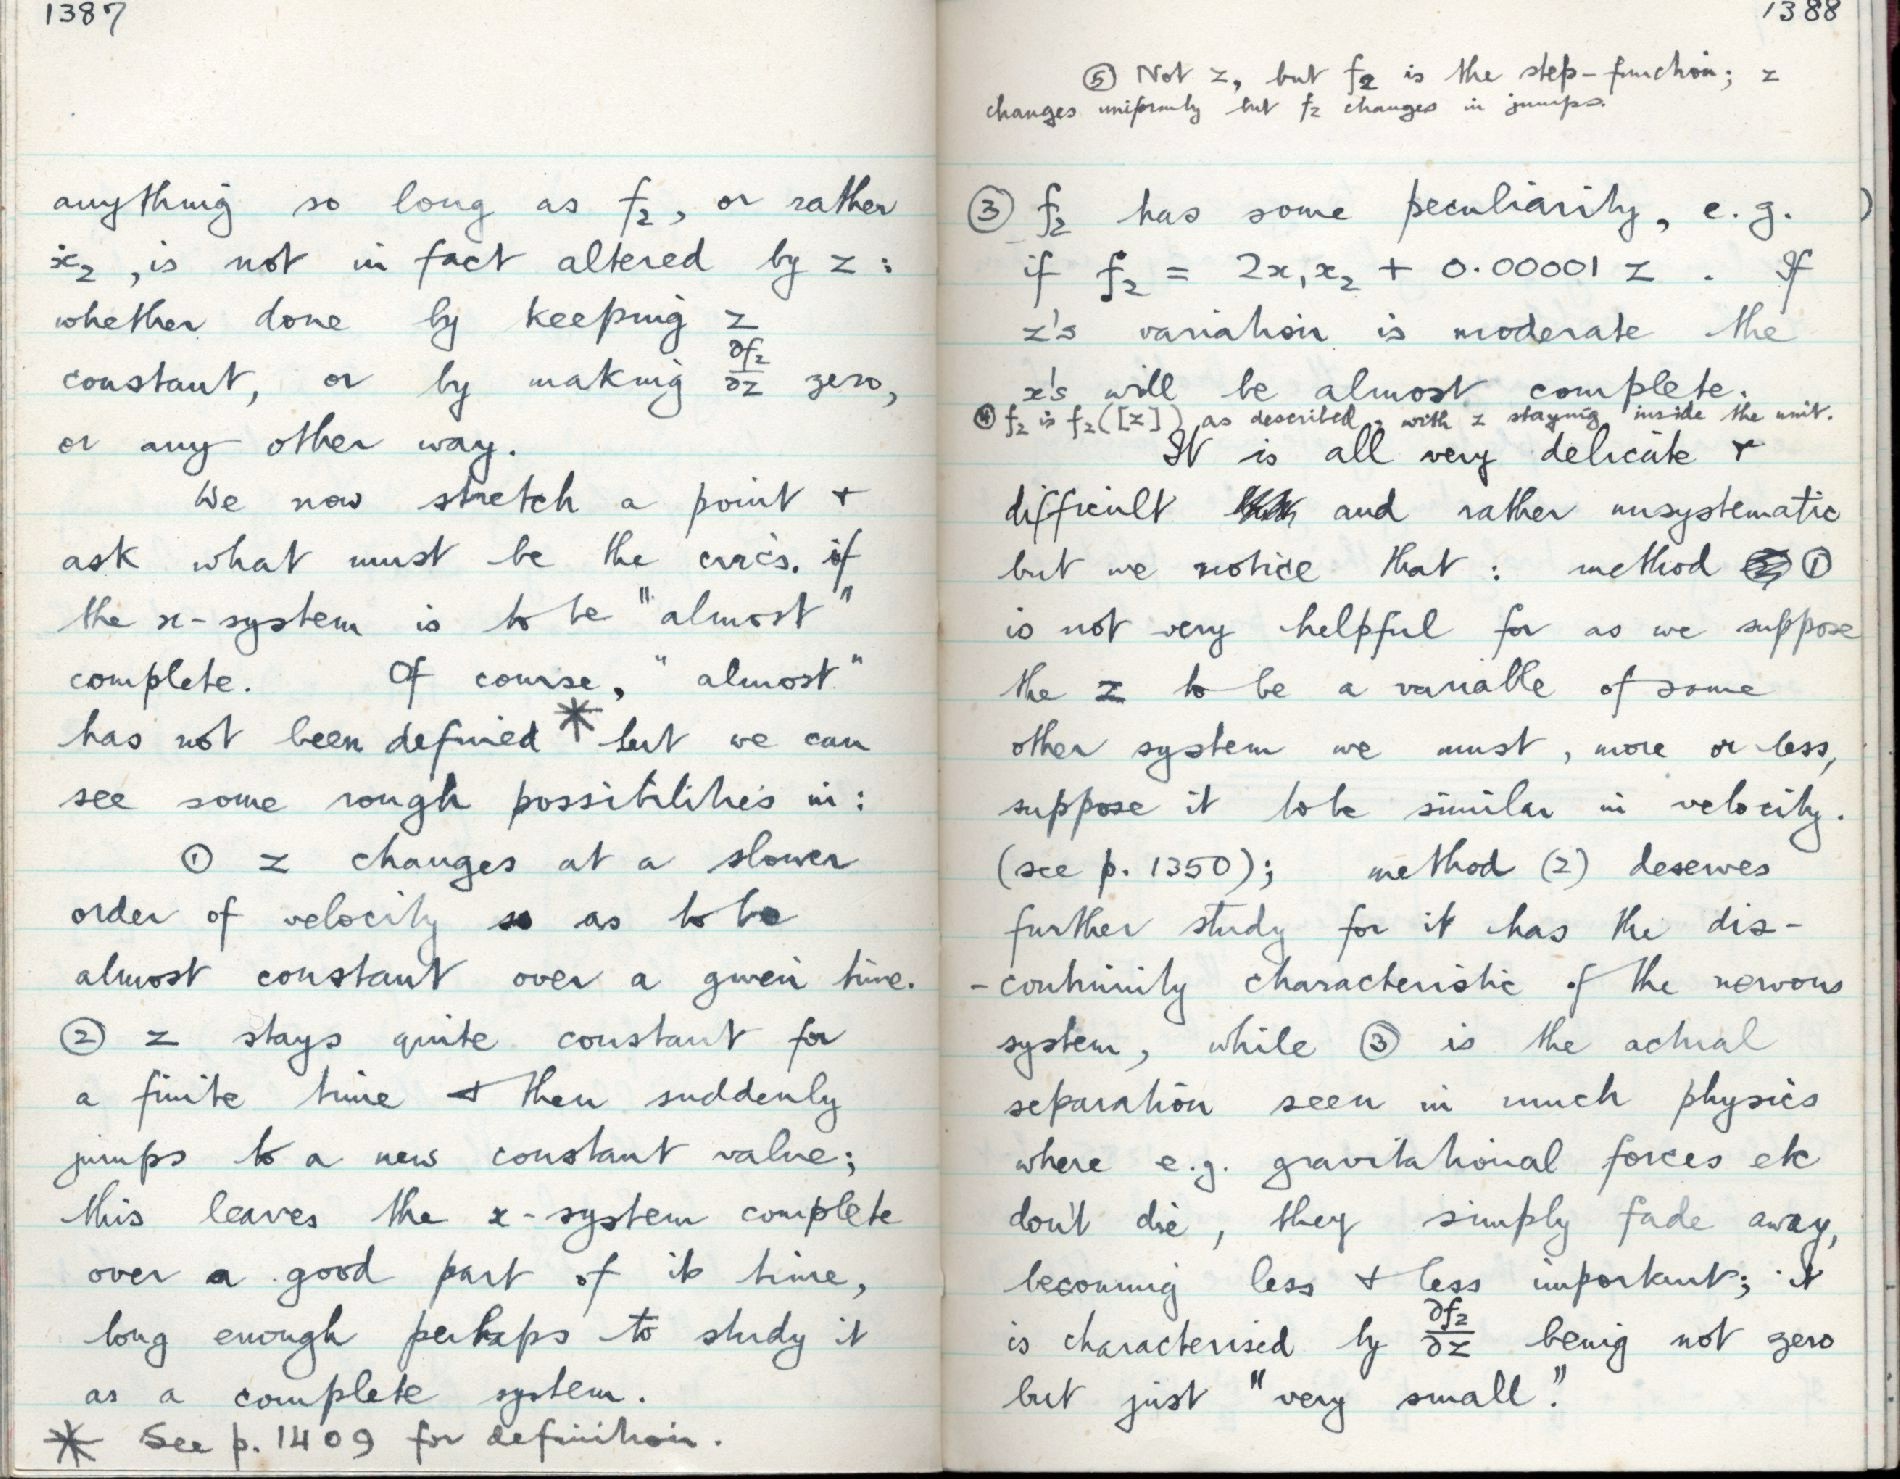 1387
anything so long as f₂, or rather
ẋ₂, is not in fact altered by z:
whether done by keeping z
constant, or by making ∂f₂/∂z zero,
or any other way.
We now stretch a point +
ask what must be the circ's. if
the x-system is to be "almost"
complete. Of course, "almost"
has not been defined * but we can
see some rough possibilities in:
① z changes at a slower
order of velocity so as to be
almost constant over a given time.
② z stays quite constant for
a finite time + then suddenly
jumps to a new constant value;
this leaves the x-system complete
over a good part of its time,
long enough perhaps to study it
as a complete system.
* See p. 1409 for definition.
1388
⑤ Not z, but f₂ is the step-function; z
changes uniformly but f₂ changes in jumps.
③ f₂ has some peculiarity, e.g.
if f₂ = 2x₁x₂ + 0.00001 z . If
z's variation is moderate the
x's will be almost complete.
④ f₂ is f₂([z]) as described, with z staying inside the unit.
It is all very delicate +
difficult and rather unsystematic
but we notice that: method ①
is not very helpful for as we suppose
the z to be a variable of some
other system we must, more or less,
suppose it to be similar in velocity.
(see p. 1350); method (2) deserves
further study for it has the dis-
-continuity characteristic of the nervous
system, while ③ is the actual
separation seen in much physics
where e.g. gravitational forces etc
don't die, they simply fade away,
becoming less + less important; it
is characterised by ∂f₂/∂z being not zero
but just "very small".